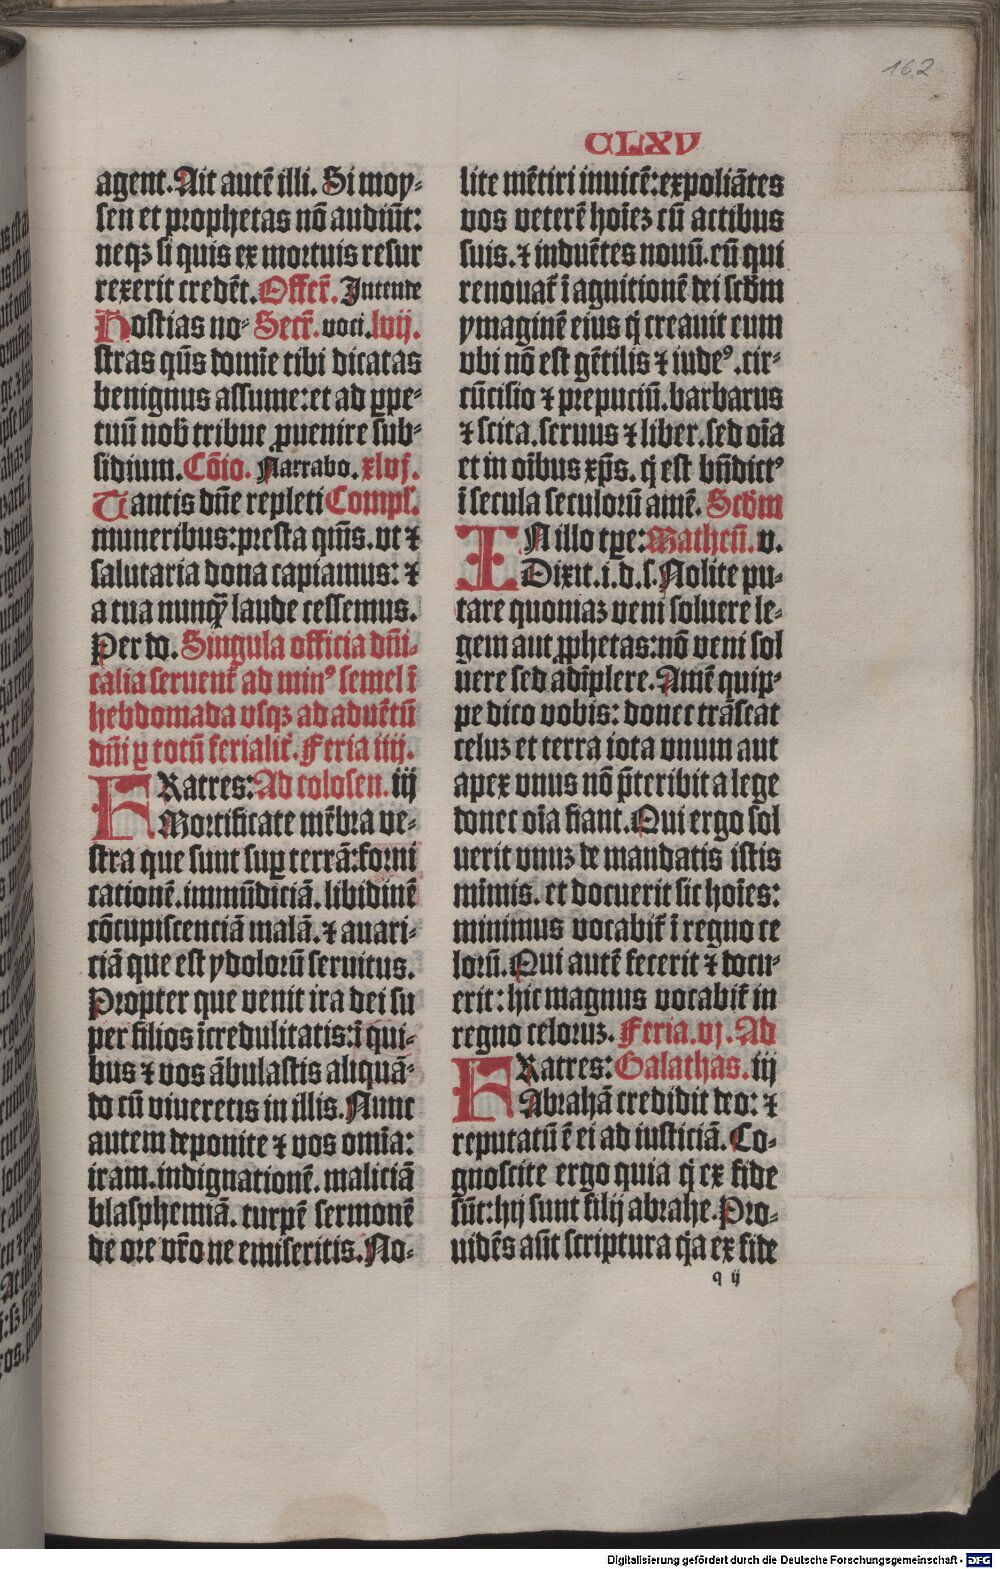 162
CLXV
agent. Ait autē illi. Si moy-
sen et prophetas nō audiūt:
neqz si quis ex mortuis resur
rexerit credēt. Offer̄. Intende
Hostias no- Secr̄. voci. lvij.
stras qūs domīe tibi dicatas
benignus assume: et ad ꝑpe-
tuū nob̄ tribue ꝓuenire sub-
sidium. Cōio. Narrabo. xlvj.
Tantis dn̄e repleti Compl̄.
muneribus: presta qm̄s. vt ⁊
salutaria dona capiamus: ⁊
a tua nunqȝ laude cessemus.
Per do. Singula officia dn̄i-
calia seruent̄ ad minꝰ semel ī
hebdomada vsqz ad aduētū
dn̄i ꝑ totū ferialit̄. Feria iiij.
FRatres: Ad colosen. iij
Mortificate mēbra ve-
stra que sunt suꝑ terrā: forni
cationē. immūdiciā. libidinē
cōcupiscenciā malā. ⁊ auari-
ciā que est ydolorū seruitus.
Propter que venit ira dei su
per filios īcredulitatis: ī qui-
bus ⁊ vos ābulastis aliquā-
do cū viueretis in illis. Nunc
autem deponite ⁊ vos omīa:
iram. indignationē. maliciā
blasphemiā. turpē sermonē
de ore vr̄o ne emiseritis. No-
lite mētiri inuicē: expoliātes
vos veterē hoīez cū actibus
suis. ⁊ induētes nouū. eū qui
renouat̄ ī agnitionē dei scd̄m
ymaginē eius q̄ creauit eum
vbi nō est gētilis ⁊ iudeꝰ. cir-
cūcisio ⁊ prepuciū. barbarus
⁊ scita. seruus ⁊ liber. sed oīa
et in oībus xp̄s. q̄ est bn̄dictꝰ
ī secula seculorū amē. Scd̄m
IN illo tpe: Matheū. v.
Dixit. i. d. s. Nolite pu-
tare quoniaz veni soluere le-
gem aut ꝓphetas: nō veni sol
uere sed adīplere. Amē quip-
pe dico vobis: donec trāseat
celuz et terra iota vnum aut
apex vnus nō p̄teribit a lege
donec oīa fiant. Qui ergo sol
uerit vnuz de mandatis istis
mīmis. et docuerit sic hoīes:
minimus vocabit̄ ī regno ce
lorū. Qui autē fecerit ⁊ docu-
erit: hic magnus vocabit̄ in
regno celoruz. Feria. vj. Ad
FRatres: Galathas. iij
Abrahā credidit deo: ⁊
reputatū ē ei ad iusticiā. Co-
gnoscite ergo quia q̄ ex fide
sūt: hij sunt filij abrahe. Pro-
uidēs aūt scriptura q̄a ex fide
q ij
Digitalisierung gefördert durch die Deutsche Forschungsgemeinschaft - DFG